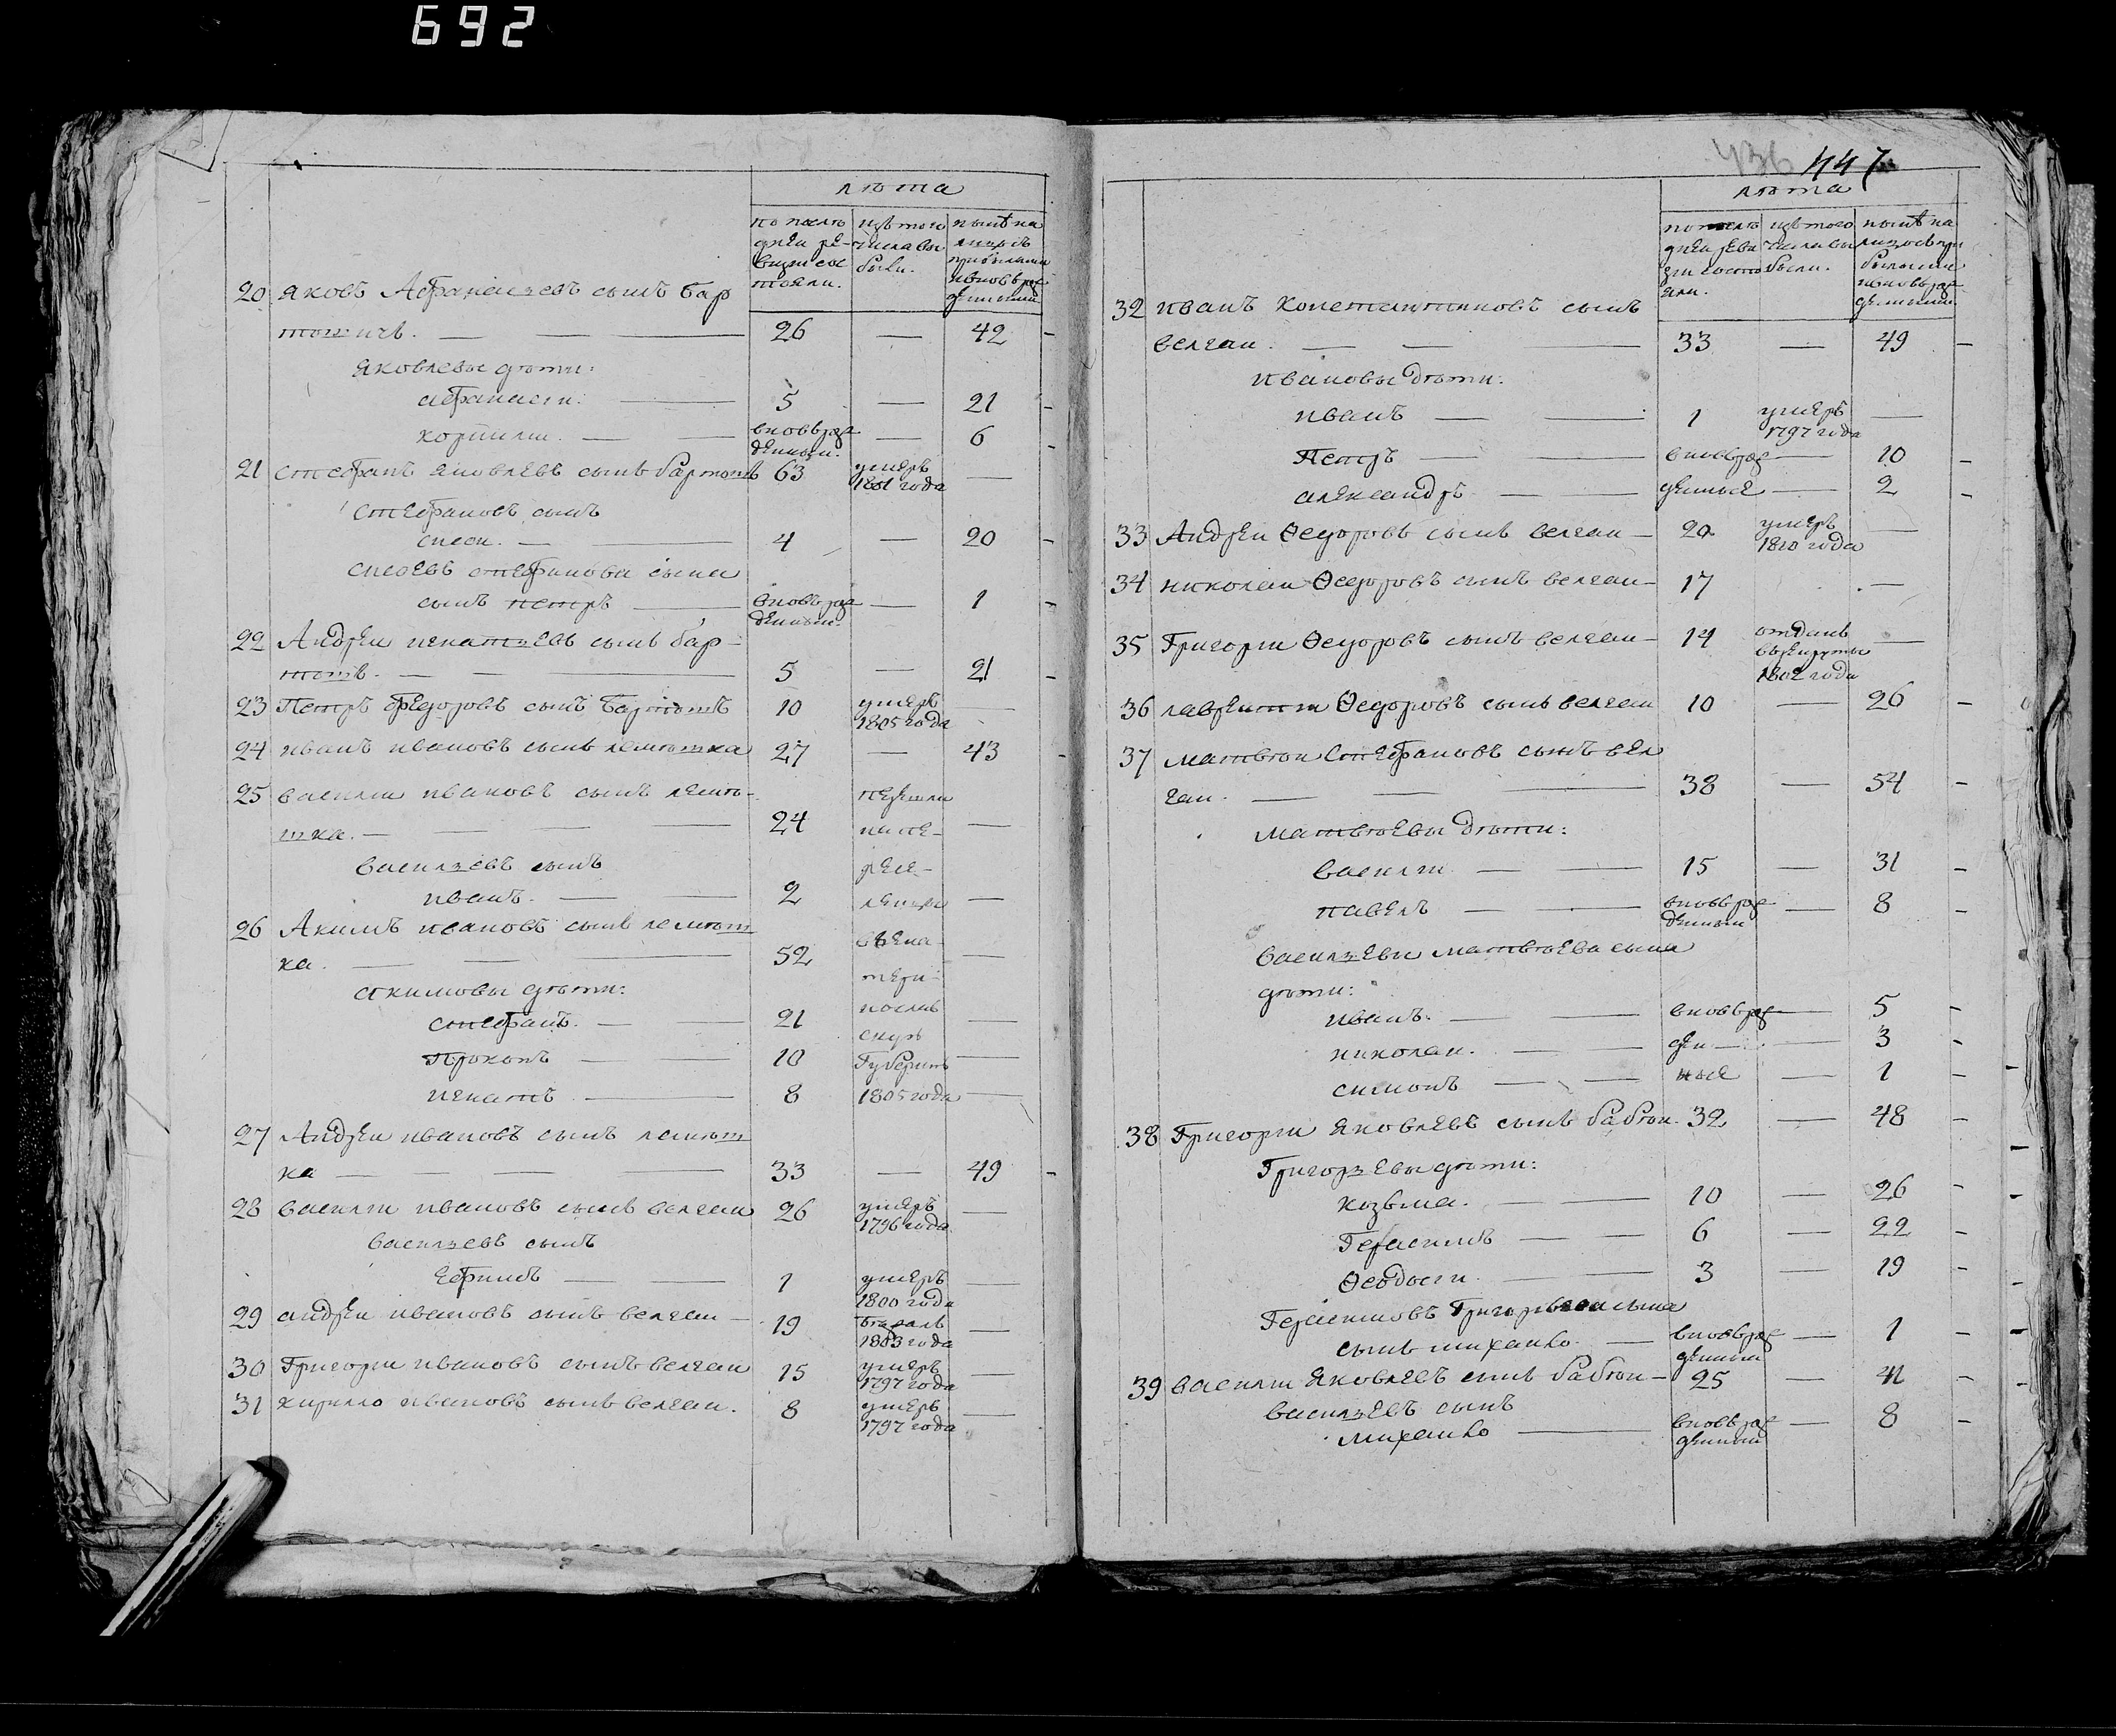 692
лѣта
по последней ревизии состояли.
изъ того числа выбыли.
ныне на лицо съ прибылыми и вновь рожденными
20 Яковъ Афанасьевъ сынъ Бар
26 — 42
Яковлевы дѣти:
Афанасеи. 5 — 21
корнили. вновь рожденныи. — 6
21 Стефанъ Яковлевъ сынъ бартошъ 63 умеръ 1801 года —
Стефановъ сынъ
4 — 20
стефанова сына
сынъ петръ вновь рожденныи. — 1
22 Андреи игнатьевъ сынъ бар
тошъ. 5 — 21
23 Петръ Федоровъ сынъ Бартошъ 10 умеръ 1805 года —
24 иванъ ивановъ сынъ лемешка 27 — 43
25 василии ивановъ сынъ леме
шка. 24 —
васильевъ сынъ
иванъ. 2 —
26 Акимъ ивановъ сынъ лемеш
ка. 52 —
акимовы дѣти:
стефанъ. 21 —
Прокопъ 10 —
игнатъ 8 —
губернию
1805 года
27 Андреи ивановъ сынъ лемеш
ка 33 — 49
28 василии ивановъ сынъ велган 26 умеръ 1796 года —
васильевъ сынъ
Ефимъ 1 умеръ 1800 года —
29 андреи ивановъ сынъ велган 19 бежалъ 1803 года —
30 Григории ивановъ сынъ велган 15 умеръ 1797 года —
31 кирило ивановъ сынъ велган. 8 умеръ 1797 года —
436 447
лѣта
по последней ревизии состояли.
изъ того числа выбыли.
ныне на лицо съ прибылыми и вновь рожденными
32 иванъ Константиновъ сынъ
велган. 33 — 49
ивановы дѣти:
иванъ 1 умеръ 1797 года —
Петръ вновь рож — 10
александръ денные — 2
33 Андреи Ѳедоровъ сынъ велган 20 умеръ 1810 года —
34 николаи Ѳедоровъ сынъ велган 17 —
35 Григории Ѳедоровъ сынъ велган 14 отданъ въ рекруты 1802 года —
36 лаврентии Ѳедоровъ сынъ велган 10 — 26
37 матвѣи Стефановъ сынъ вел
ган. 38 — 54
матвѣевы дѣти:
василии 15 — 31
павелъ вновь рожденныи — 8
васильевы матвѣева сына
дѣти:
иванъ. вновь рож — 5
николаи. ден — 3
симонъ ные — 1
38 Григории Яковлевъ сынъ бабѣи. 32 — 48
Григорьевы дѣти:
козьма. 10 — 26
Герасимъ 6 — 22
Ѳеодосеи. 3 — 19
Герасимовъ Григорьева сына
сынъ михаило. вновь рожденныи — 1
39 василии Яковлевъ сынъ бабѣи 25 — 41
васильевъ сынъ
михаило вновь рожденныи — 8